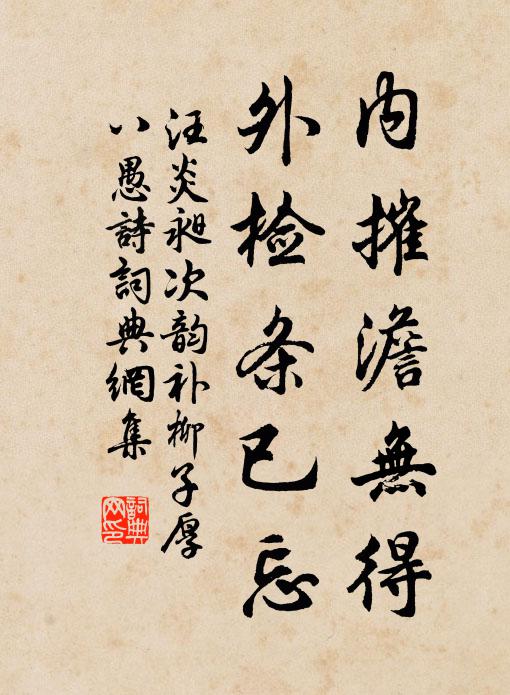 内摧澹無得
外检条已忘
汪炎昶次韵补柳子厚
八愚詩詞典網集
詞典網印